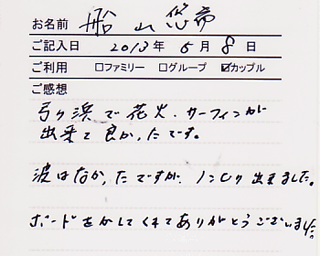 お名前 船山悠希
ご記入日 2013年5月8日
ご利用 □ファミリー □グループ ☑カップル
ご感想
弓ヶ浜で花火・サーフィンが
出来て良かったです。
波はなかったですが、ノンビリ出来ました。
ボードをかしてくれてありがとうございました。